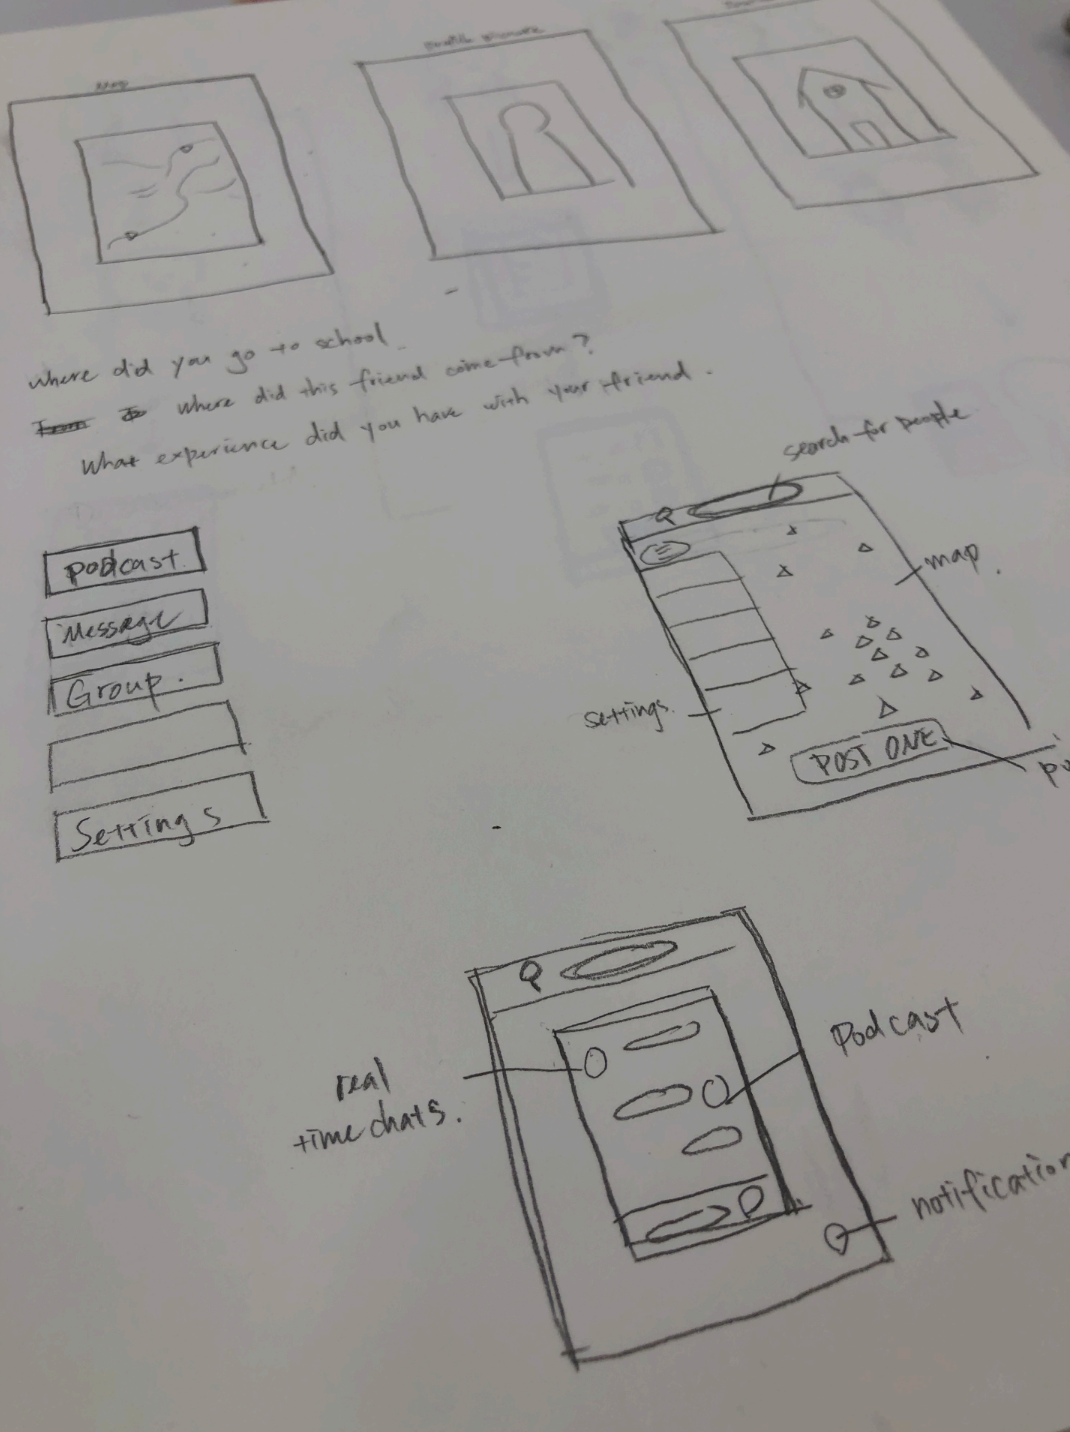 Map
profile picture
where did you go to school
where did this friend come from?
What experience did you have with your friend.
search for people
podcast.
Message
Group.
Settings
map.
settings.
POST ONE
real
time chats.
Podcast
notification